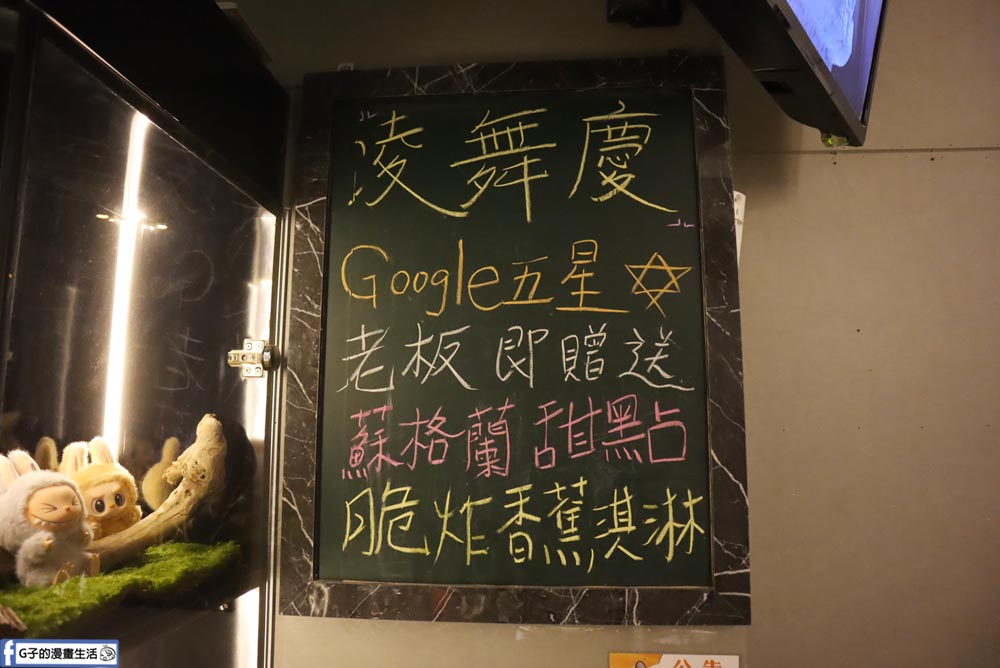 凌舞慶
Google五星
老板即贈送
蘇格蘭甜點
脆炸香蕉淇淋
公告
f G子的漫畫生活